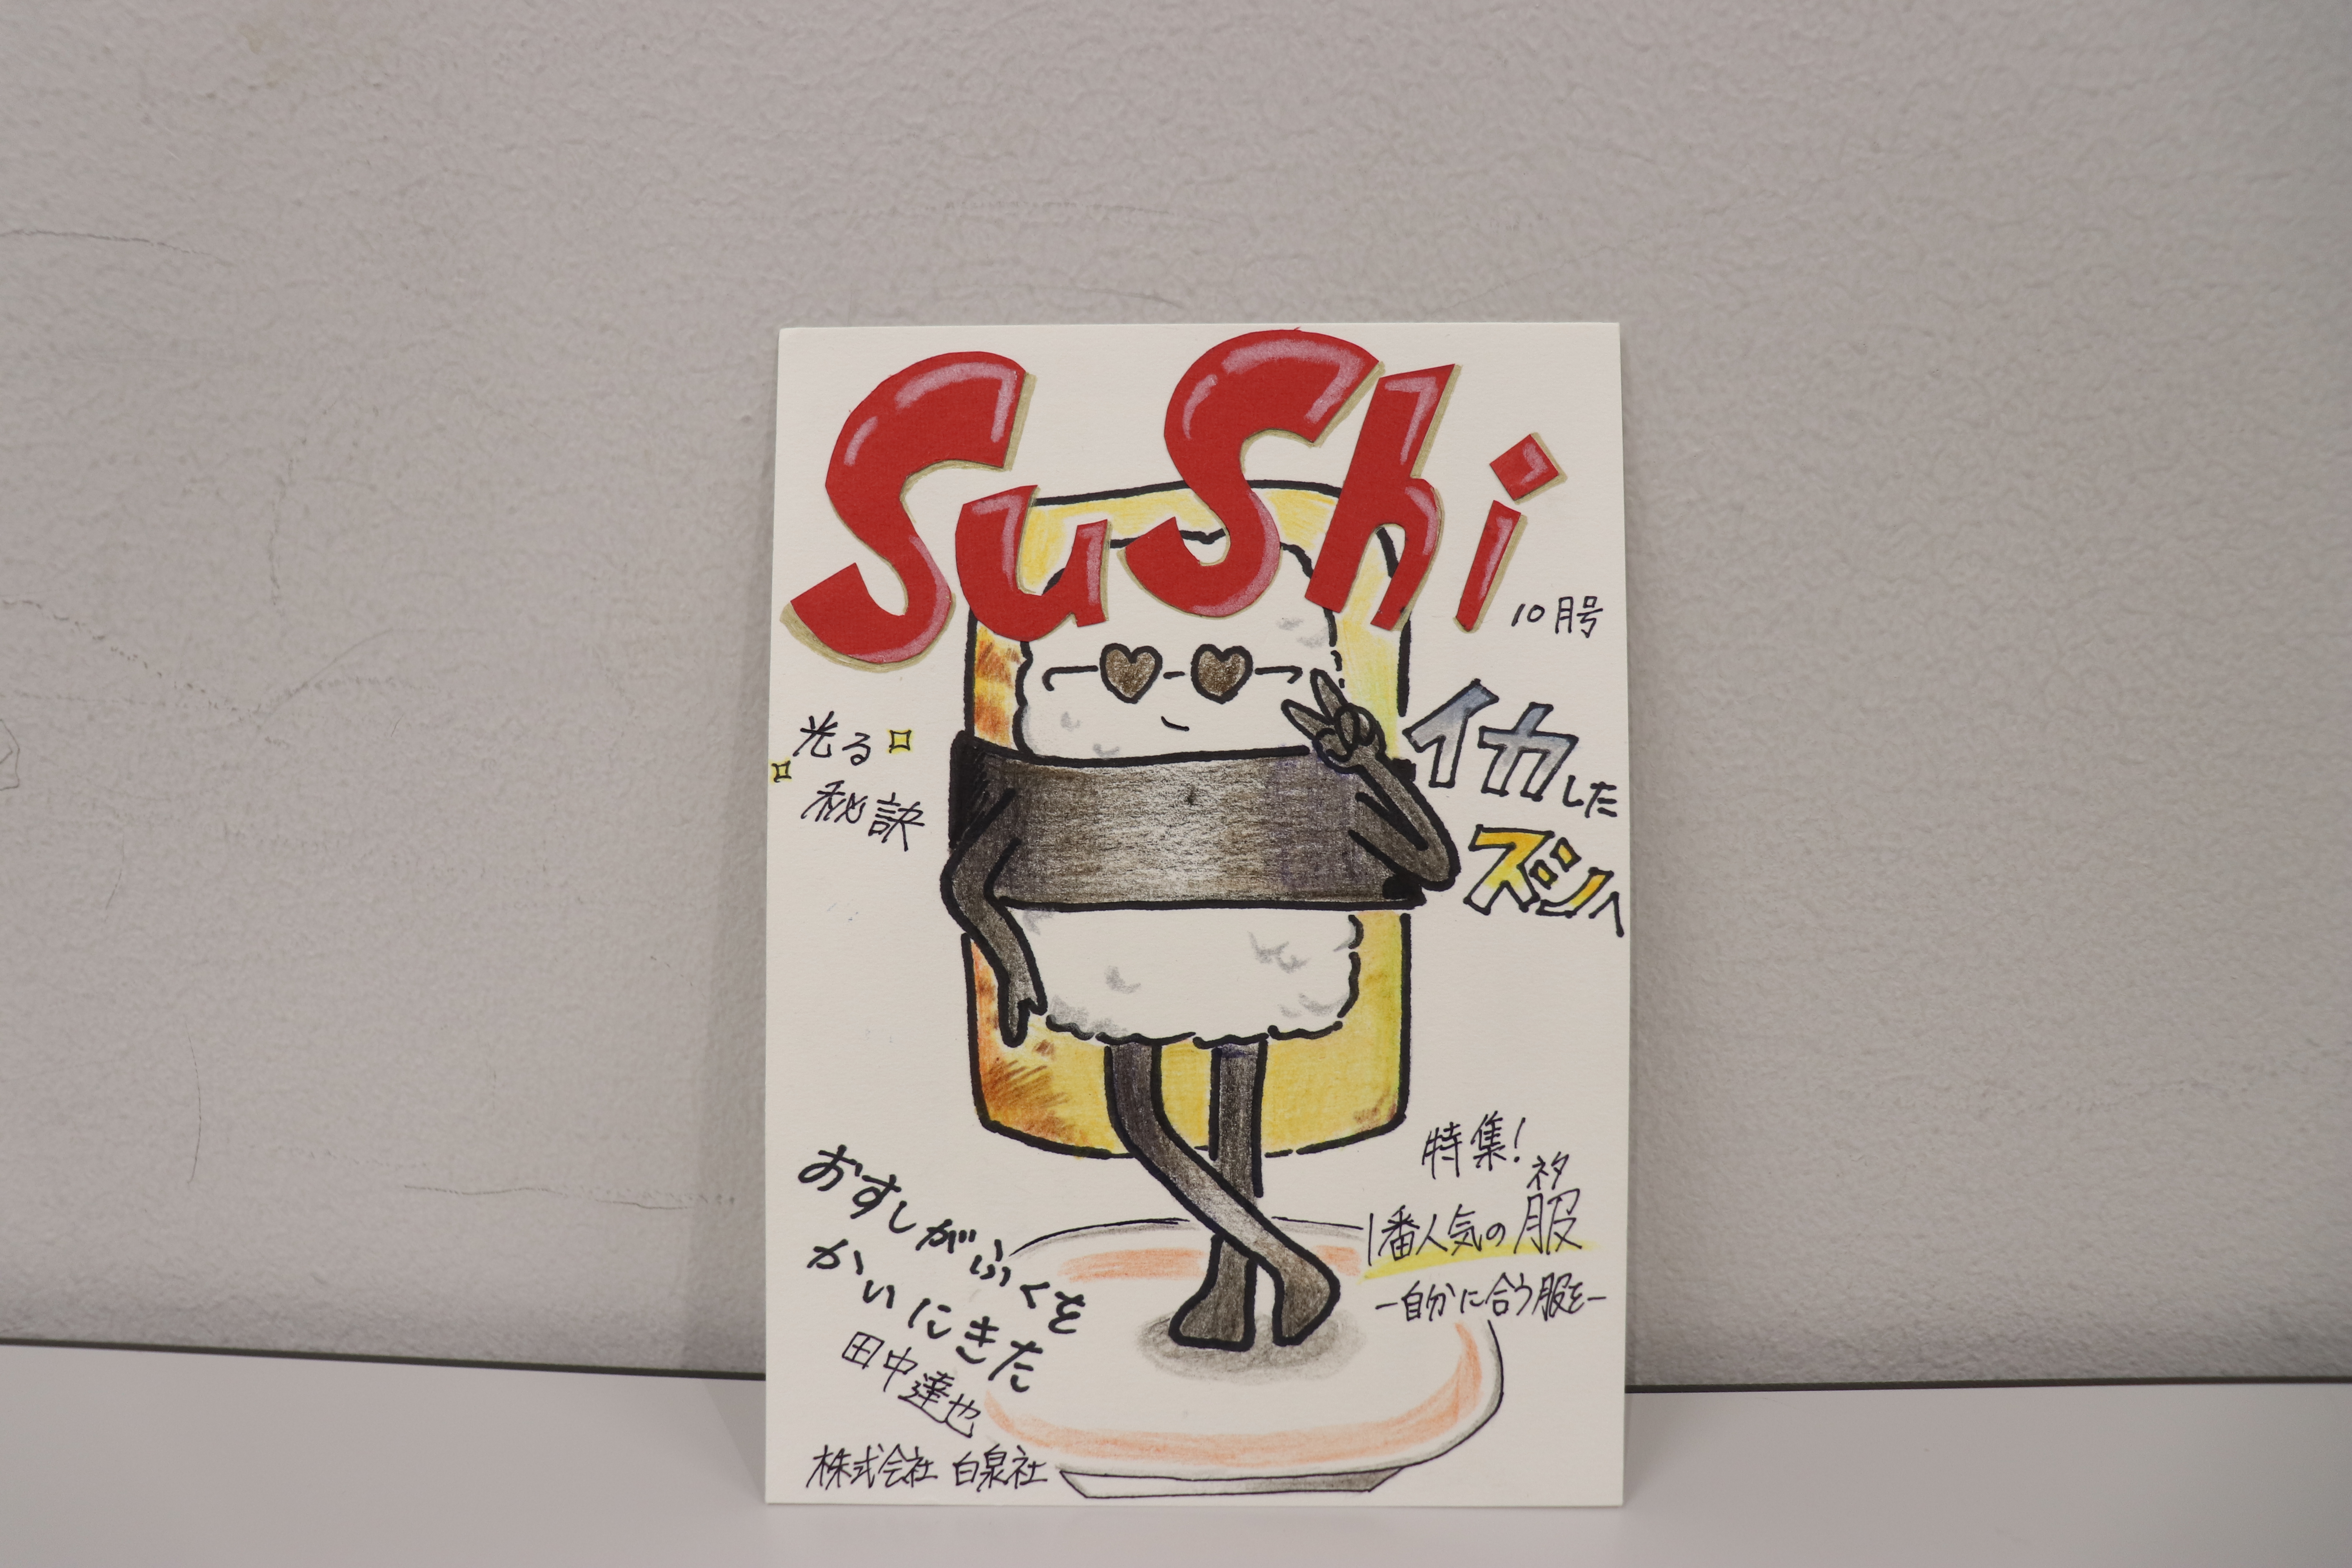 SuShi
10月号
光る
秘訣
イカした
ズシへ
特集!
ネタ
1番人気の服
ー自分に合う服をー
おすしがふくを
かいにきた
田中達也
株式会社 白泉社